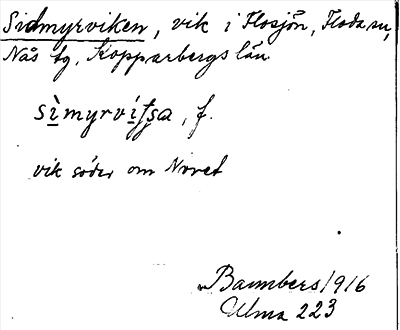 Sidmyrviken, vik i Flosjön, Floda sn,
Nås tg, Kopparbergs län
sìmyrvìtʃa, f.
vik söder om Noret
Bannbers 1916
Ulma 223